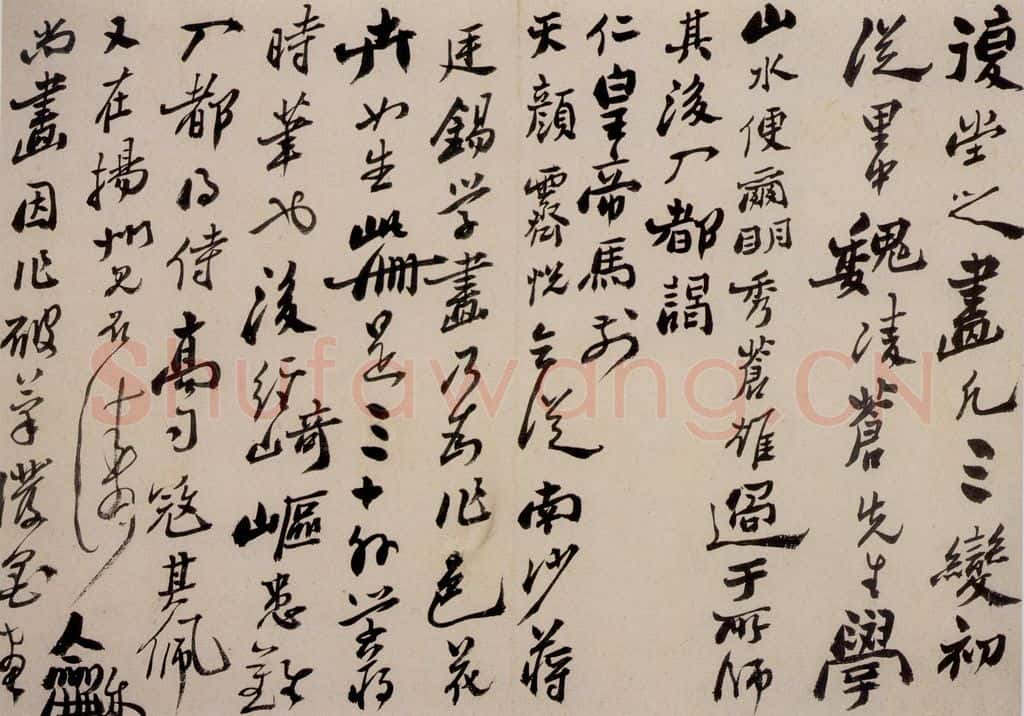 復堂之畫凡三變初
從里中魏凌蒼先生學
山水便爾明秀蒼雄過于所師
其後入都謁
仁皇帝馬前
天顏霽悅令從南沙蔣
廷錫學畫乃為作色花
卉如生此冊是三十外學蔣
時筆也後經崎嶇患難
入都得侍高司寇其佩
又在揚州見石濤龢
尚畫因作破筆潑墨畫
Shufawang.CN